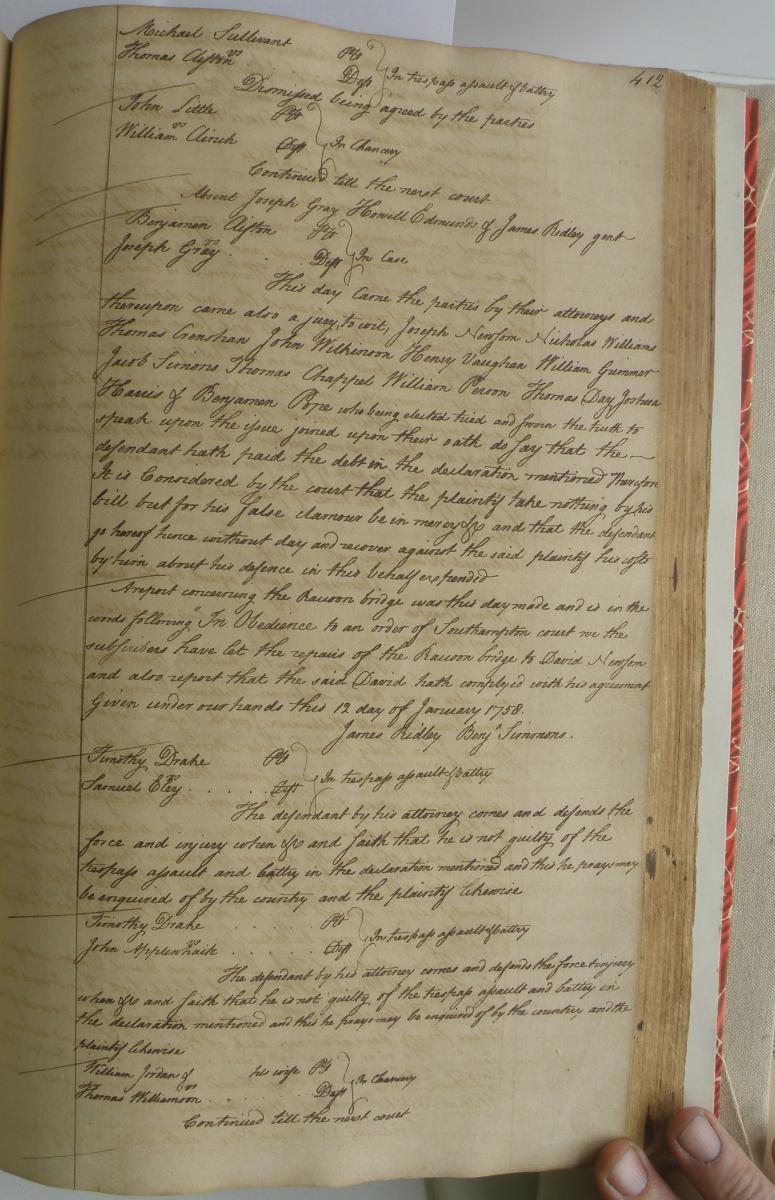 412
Michael Sullivant Plt
vs In trespass assault & battry
Thomas Clifton Deft
Dismissed being agreed by the parties
John Little Plt
vs In Chancery
William Clinch Deft
Continued till the next court
Absent Joseph Gray Howell Edmunds & James Ridley gent
Benjamen Clifton Plt
vs In Case
Joseph Gray . . Deft
This day Came the parties by their attorneys and
thereupon came also a jury to wit, Joseph Newsom Nicholas Williams
Thomas Crenshan John Wilkinson Henry Vaughan William Grimmer
Jacob Simons Thomas Chappel William Person Thomas Day Joshua
Harris & Benjamen Pope who being elected tried and sworn the truth to
speak upon the issue joined upon their oath do say that the
defendant hath paid the debt in the declaration mentioned Therefore
It is Considered by the court that the plaintif take nothing by his
bill but for his false clamour be in mercy &c and that the defendant
go hereof hence without day and recover against the said plaintif his costs
by him about his defence in this behalf expended
A report concerning the Racoon bridge was this day made and is in the
words following "In Obedience to an order of Southampton court we the
subscribers have let the repairs of the Racoon bridge to David Newsom
and also report that the said David hath complyed with his agreement
Given under our hands this 12 day of January 1758.
James Ridley Benjn Simmons.
Timothy Drake Plt
vs In trespass assault & battry
Samuel Eley . . . . . Deft
The defendant by his attorney comes and defends the
force and injury when &c and saith that he is not guilty of the
trespass assault and battry in the declaration mentioned and this he prays may
be enquired of by the country and the plaintif likewise
Timothy Drake . . . . Plt
vs In trespass assault & battry
John Applewhaite . . . . Deft
The defendant by his attorney comes and defends the force & injury
when &c and saith that he is not guilty of the trespass assault and battry in
the declaration mentioned and this he prays may be enquired of by the country and the
plaintif likewise
William Jordan & his wife Plts
vs In Chancery
Thomas Williamson . . . . Deft
Continued till the next court